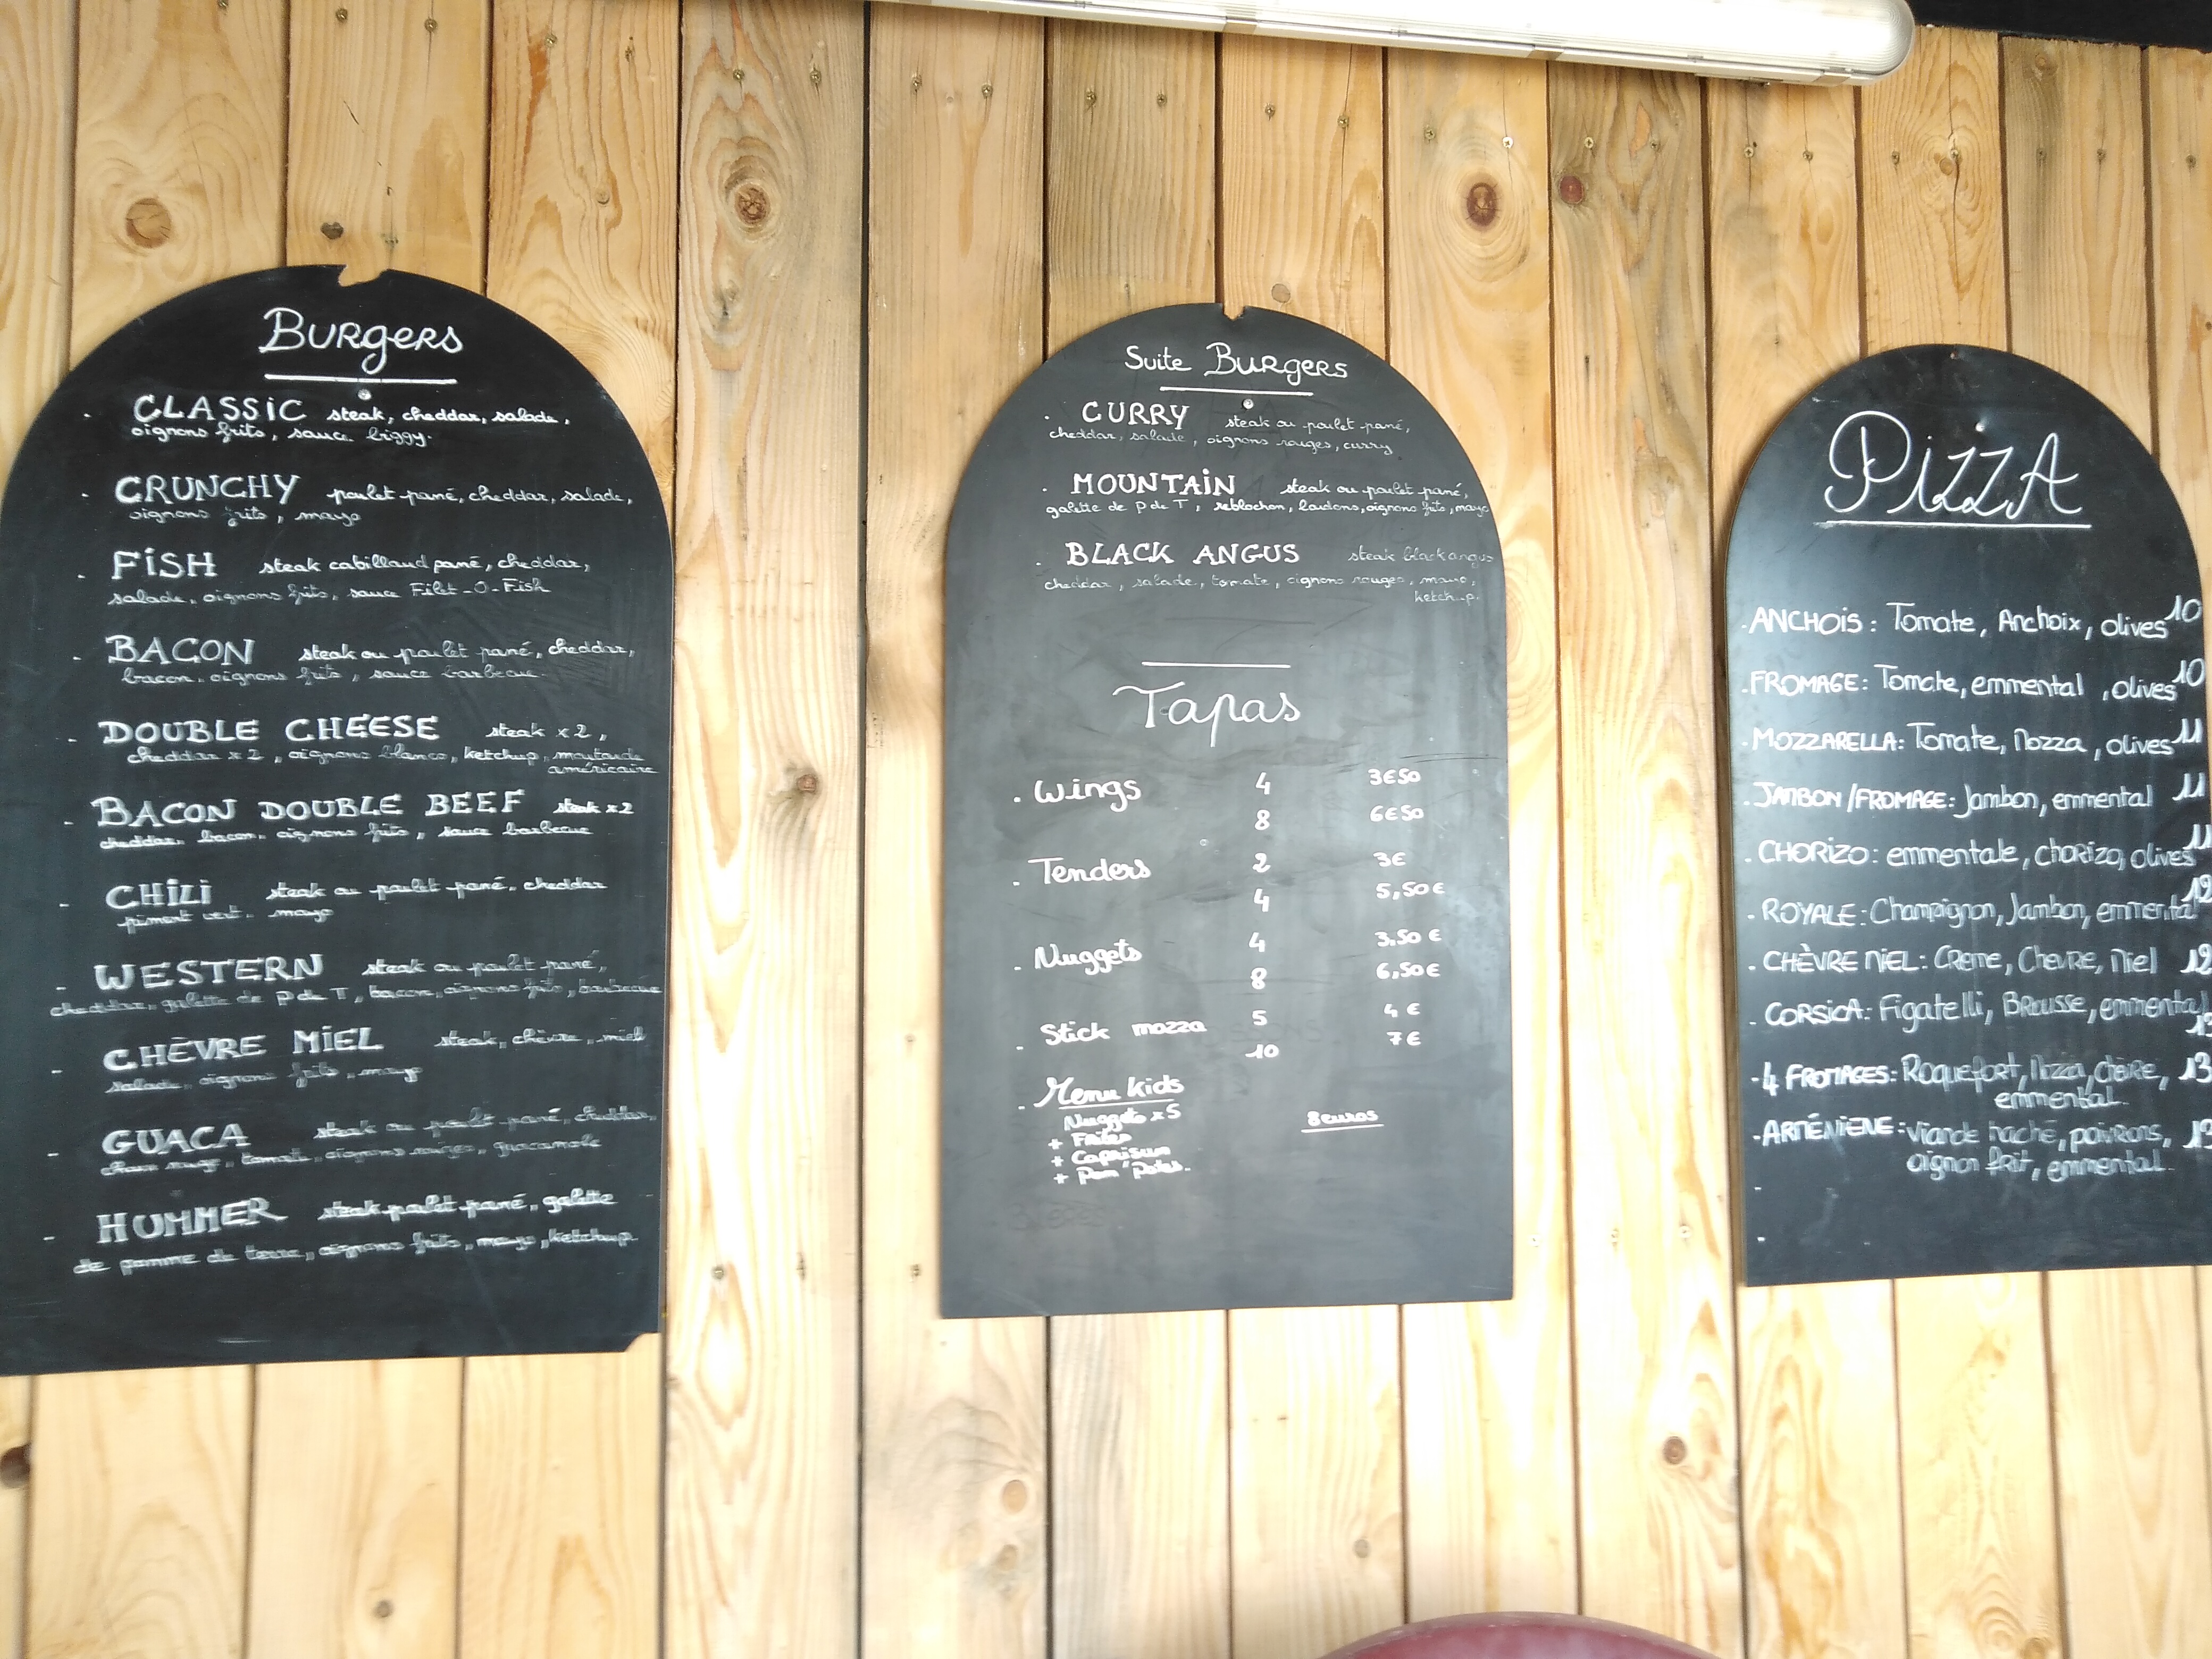 Burgers
. CLASSIC steak, cheddar, salade,
oignons frits, sauce biggy.
. CRUNCHY poulet pané, cheddar, salade,
oignons frits, mayo
. FiSH steak cabillaud pané, cheddar,
salade, oignons frits, sauce Filet-O-Fish
. BACON steak ou poulet pané, cheddar,
bacon, oignons frits, sauce barbecue.
. DOUBLE CHEESE steak x2,
cheddar x2, oignons blancs, ketchup, moutarde
américaine
. BACON DOUBLE BEEF steak x2
cheddar, bacon, oignons frits, sauce barbecue
. CHiLi steak ou poulet pané, cheddar
piment vert. mayo
. WESTERN steak ou poulet pané,
cheddar, galette de P de T, bacon, oignons frits, barbecue
. CHÈVRE MiEL steak, chèvre, miel
salade, oignons frits, mayo
. GUACA steak ou poulet pané, cheddar,
tomate, oignons rouges, guacamole
. HUMMER steak poulet pané, galette
de pomme de terre, oignons frits, mayo, ketchup
Suite Burgers
. CURRY steak ou poulet pané,
cheddar, salade, oignons rouges, curry
. MOUNTAiN steak ou poulet pané,
galette de P de T, reblochon, lardons, oignons frits, mayo
. BLACK ANGUS steak black angus
cheddar, salade, tomate, oignons rouges, mayo,
ketchup.
Tapas
. Wings 4 3€50
8 6€50
. Tenders 2 3€
4 5,50€
. Nuggets 4 3,50€
8 6,50€
. Stick mozza 5 4€
10 7€
. Menu kids
Nuggets x5 8euros
+ Frites
+ Caprisun
+ Pom'Potes.
PizzA
. ANCHOiS: Tomate, Anchoix, olives 10
. FROMAGE: Tomate, emmental, olives 10
. MOZZARELLA: Tomate, Mozza, olives 11
. JAMBON/FROMAGE: Jambon, emmental 11
. CHORIZO: emmentale, chorizo, olives 11
. ROYALE: Champignon, Jambon, emmental 12
. CHÈVRE MIEL: Creme, Chevre, Miel 12
. CORSICA: Figatelli, Brousse, emmental
. 4 FROMAGES: Roquefort, Mozza, Chèvre, 13
emmental.
. ARMÉNIENE: Viande haché, poivrons,
oignon frit, emmental.